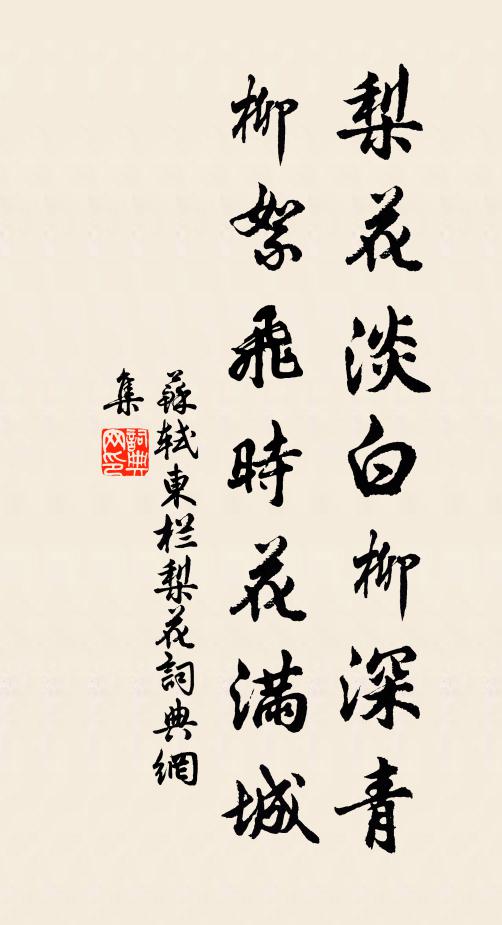 梨花淡白柳深青
柳絮飛時花滿城
蘇軾東栏梨花詞典網
集
詞典网印